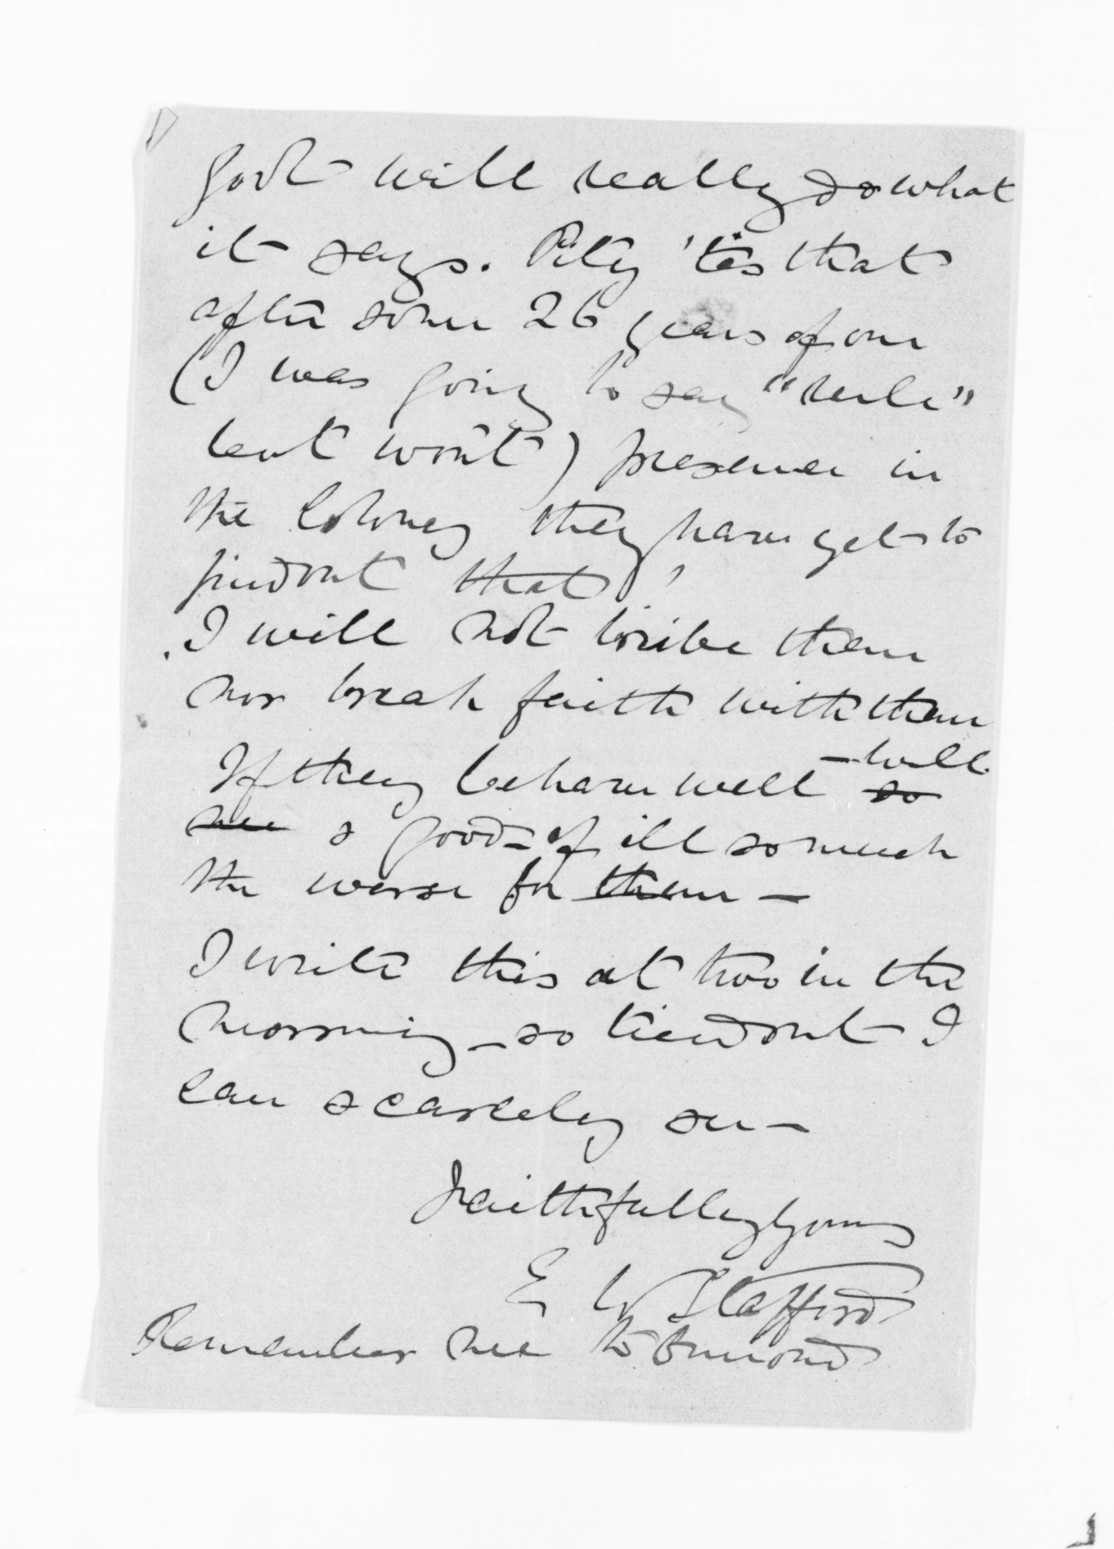 Govt will really do what
it says. Pity 'tis that
after some 26 years of our
(I was going to say "rule"
but won't) presence in
the Colony they have yet to
find out that!
I will not bribe them
nor break faith with them
If they behave well - well
so
& good - if ill so much
the worse for them -
I write this at two in the
morning - so tired out I
can scarcely see -
Faithfully Yours
E W Stafford
Remember me to Ormond